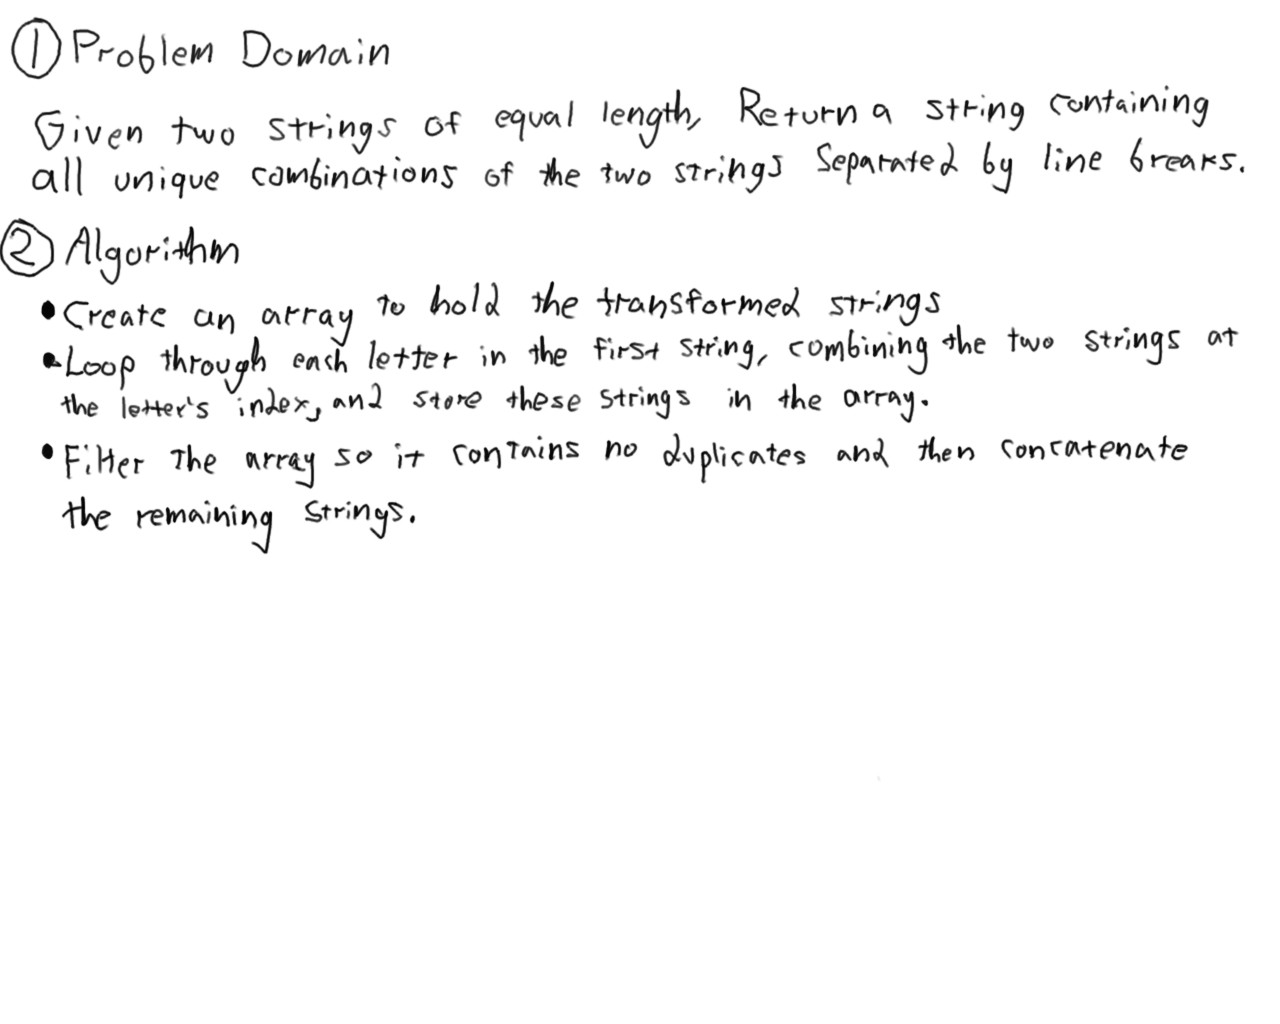 ① Problem Domain
Given two strings of equal length, Return a string containing
all unique combinations of the two strings Separated by line breaks.
② Algorithm
• Create an array to hold the transformed strings
• Loop through each letter in the first string, combining the two strings at
the letter's index, and store these strings in the array.
• Filter The array so it contains no duplicates and then concatenate
the remaining strings.